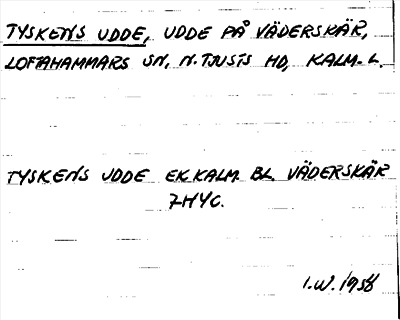 TYSKENS UDDE, UDDE PÅ VÄDERSKÄR,
LOFTAHAMMARS SN, N. TJUSTS HD, KALM. L.
TYSKENS UDDE EK. KALM. BL. VÄDERSKÄR
7HYC.
I.W. 1958